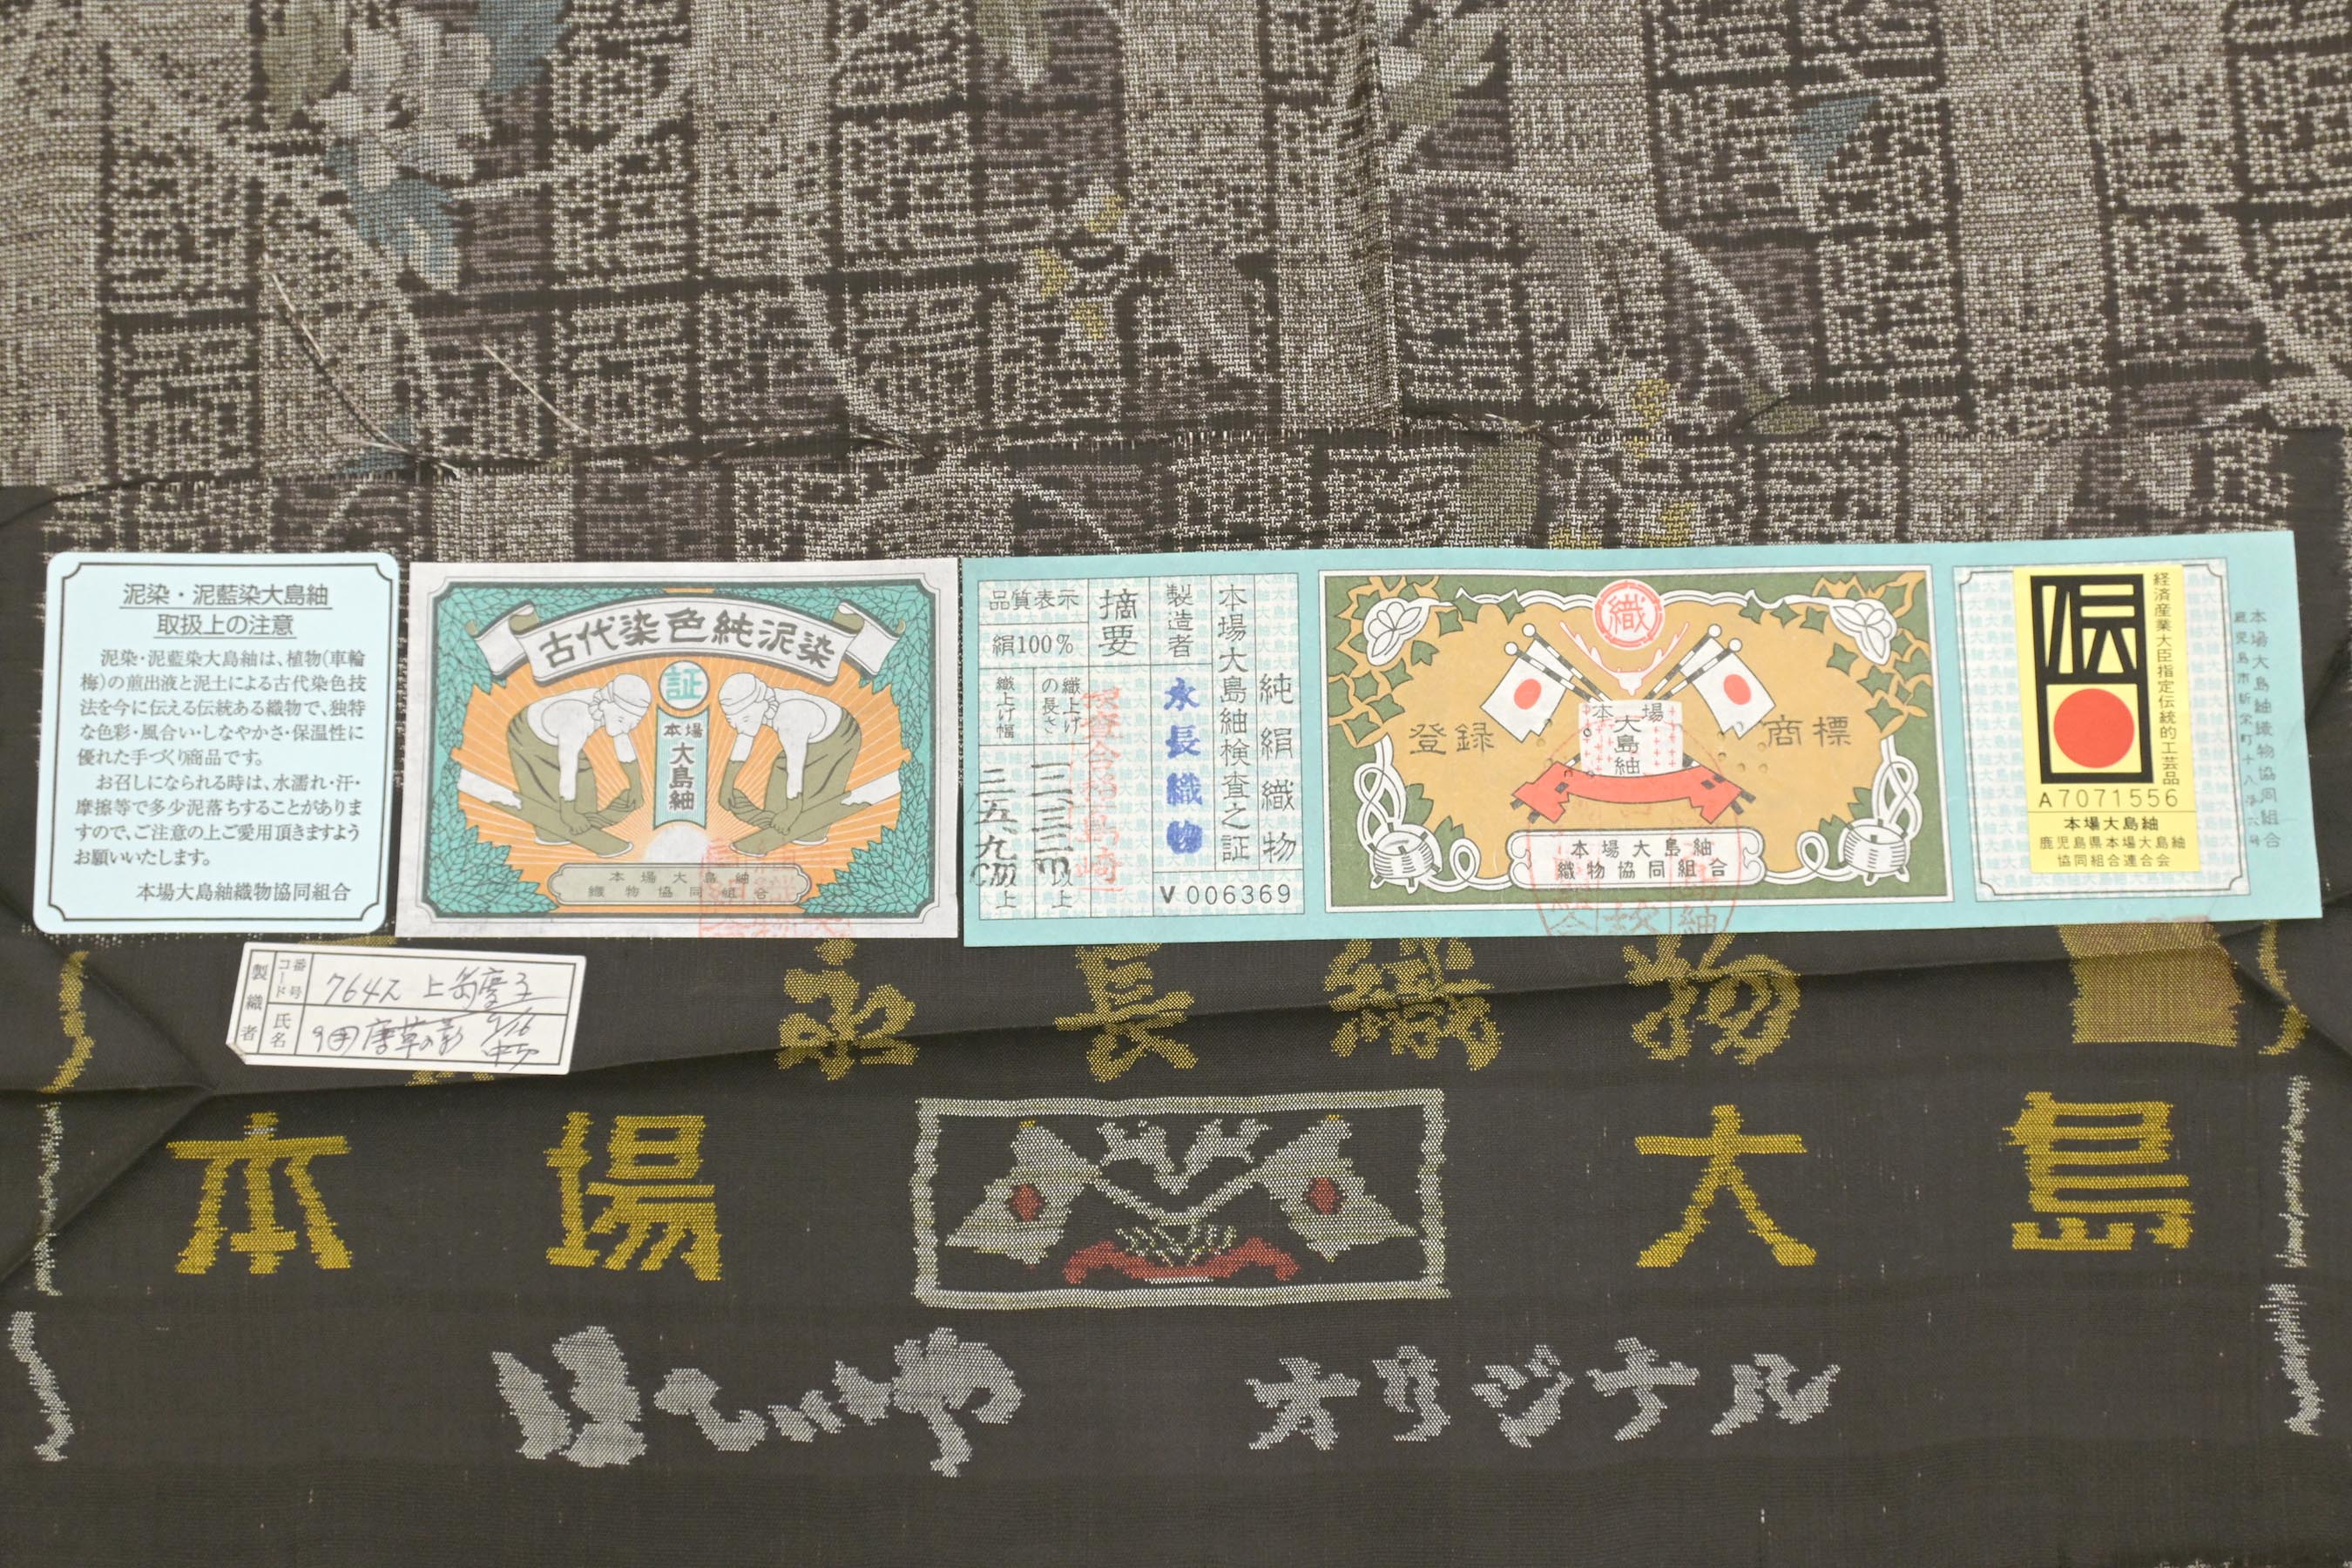 泥染・泥藍染大島紬
取扱上の注意
泥染・泥藍染大島紬は、植物(車輪
梅)の煎出液と泥土による古代染色技
法を今に伝える伝統ある織物で、独特
な色彩・風合い・しなやかさ・保温性に
優れた手づくり商品です。
お召しになられる時は、水濡れ・汗・
摩擦等で多少泥落ちすることがありま
すので、ご注意の上ご愛用頂きますよう
お願いいたします。
本場大島紬織物協同組合
古代染色純泥染
証
本場
大島紬
本場大島紬
織物協同組合
純絹織物
本場大島紬検査之証
製造者
永長織物
V006369
摘要
品質表示
絹100%
織上げの長さ
織上げ幅
以上
以上
織
登録
商標
本場
大島紬
本場大島紬
織物協同組合
伝
経済産業大臣指定伝統的工芸品
A7071556
本場大島紬
鹿児島県本場大島紬
協同組合連合会
本場大島紬織物協同組合
鹿児島市新栄町十八番六号
製織者
コード番号
氏名
永長織物
本場
大島
ほていや オリジナル